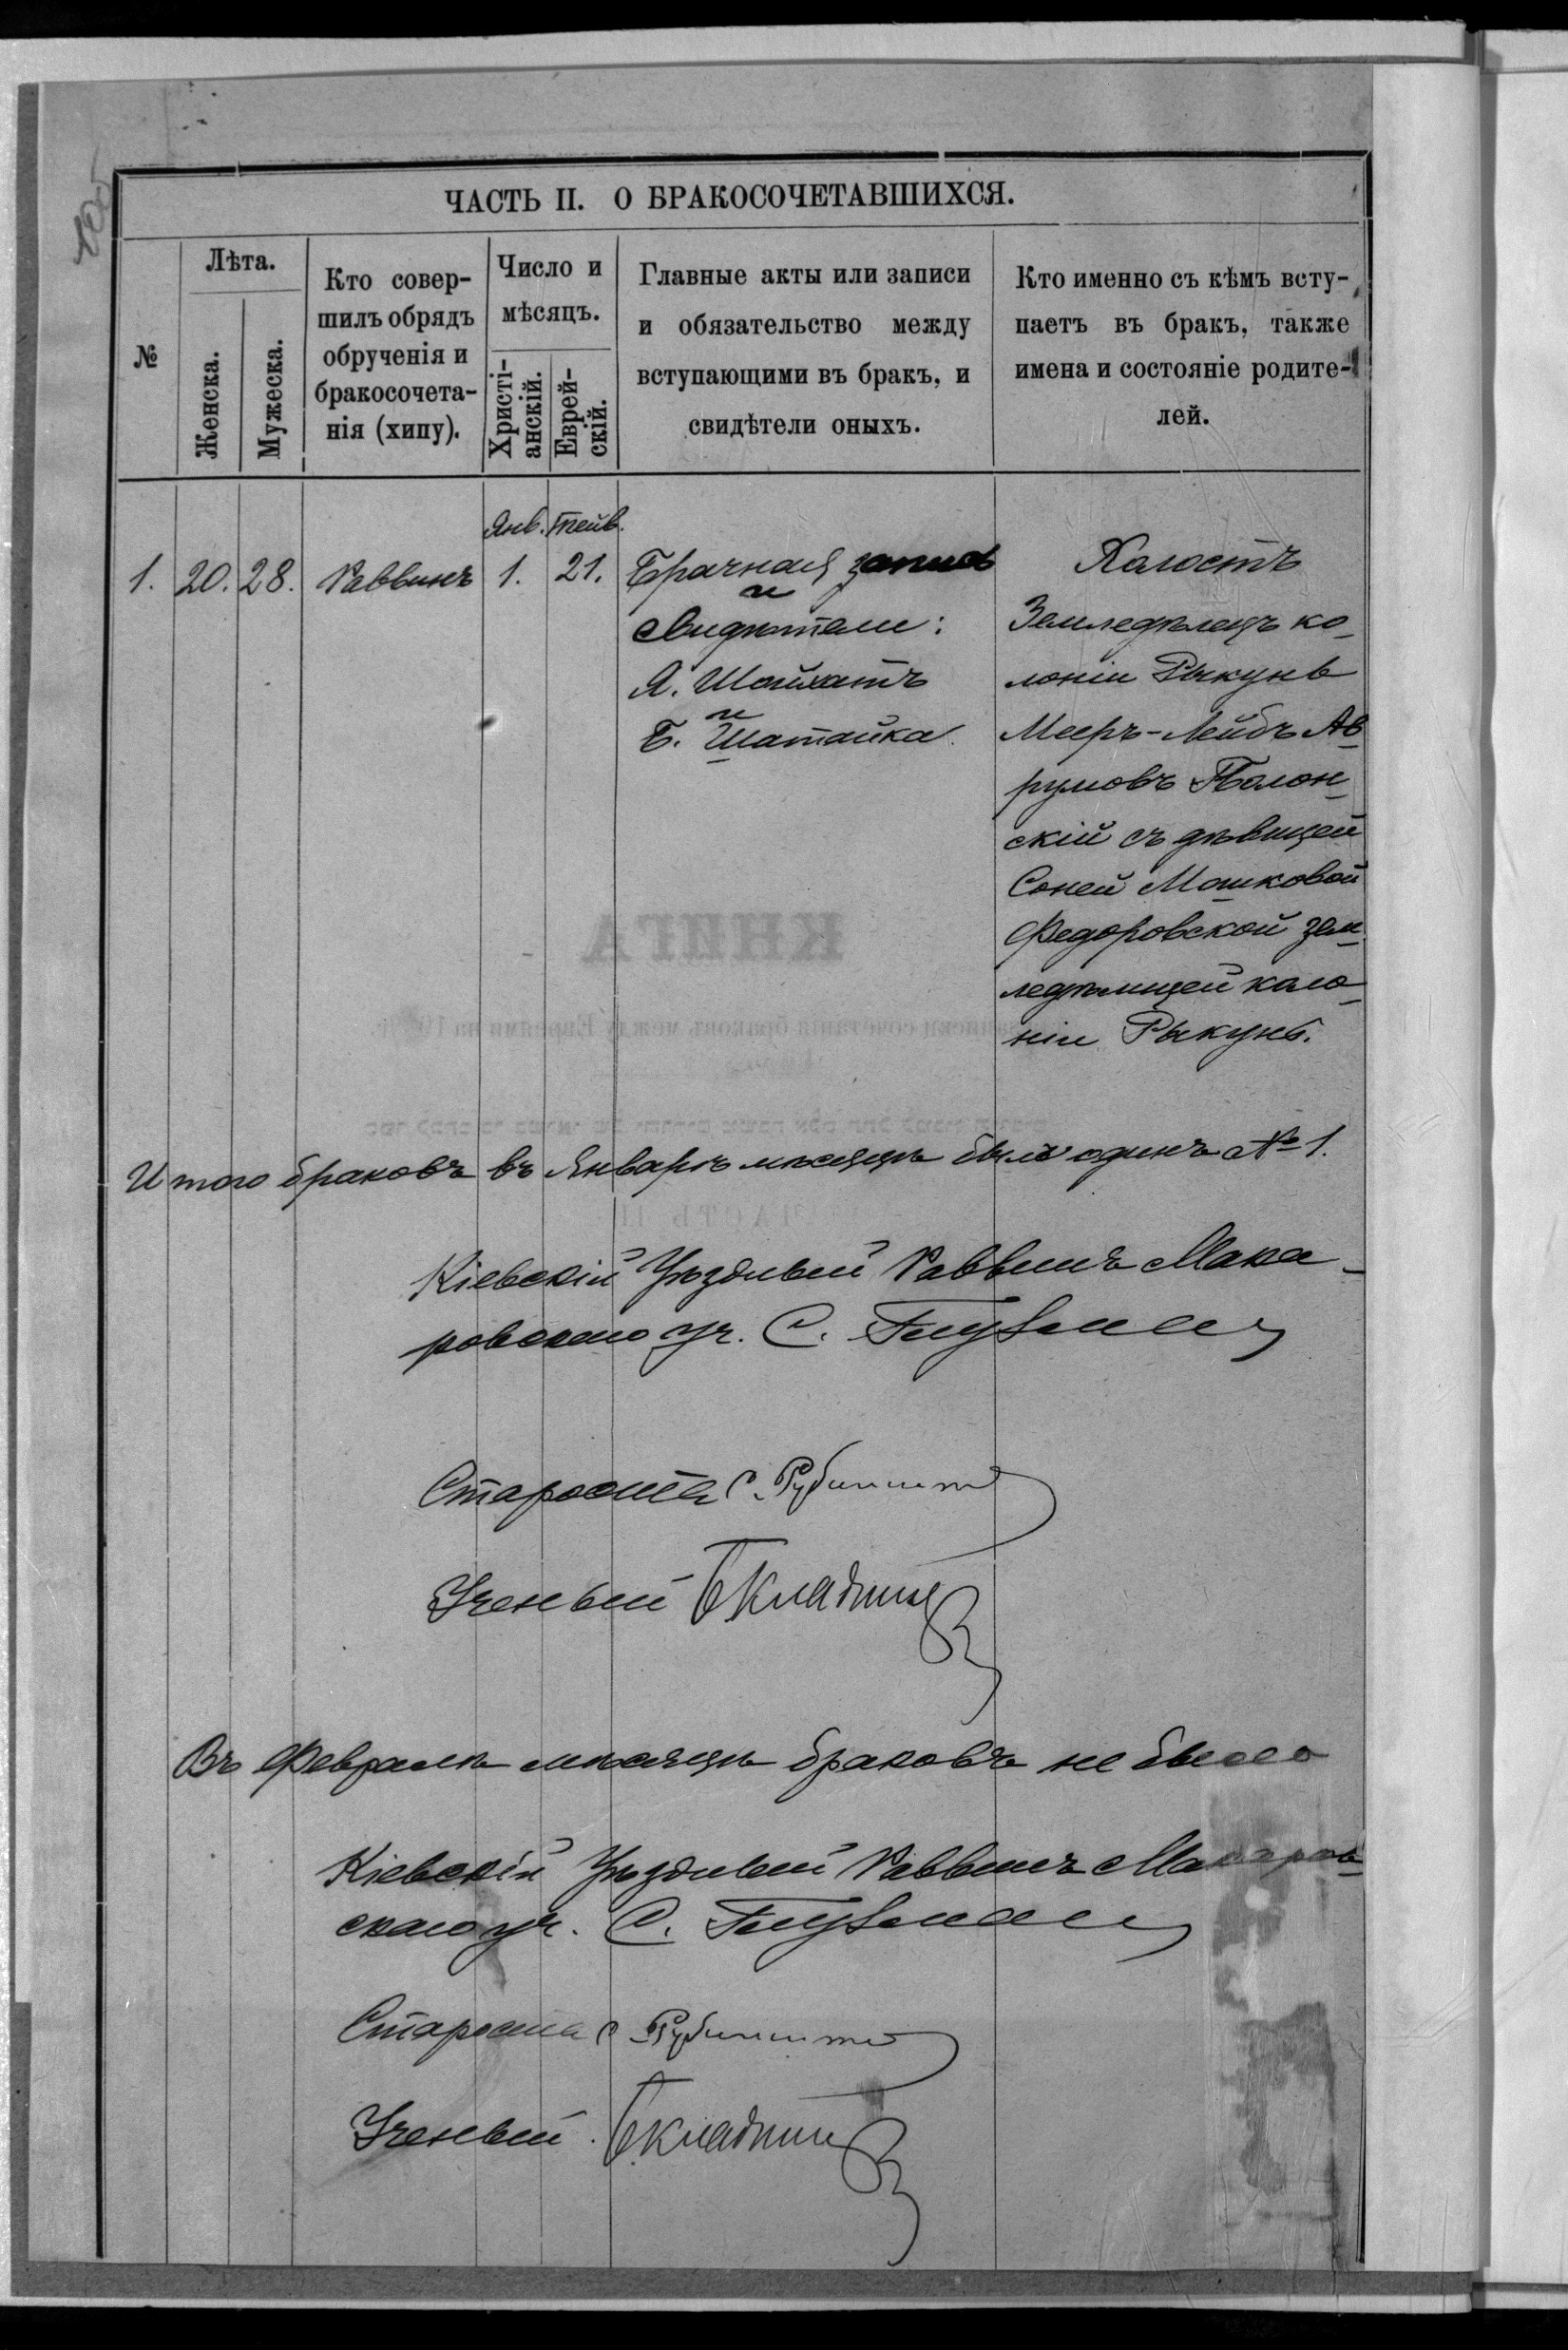 ЧАСТЬ II. О БРАКОСОЧЕТАВШИХСЯ.
№
Лѣта.
Женска.
Мужеска.
Кто совер-
шилъ обрядъ
обрученія и
бракосочета-
нія (хипу).
Число и
мѣсяцъ.
Христі-
анскій.
Еврей-
скій.
Главные акты или записи
и обязательство между
вступающими въ бракъ, и
свидѣтели оныхъ.
Кто именно съ кѣмъ всту-
паетъ въ бракъ, также
имена и состояніе родите-
лей.
Янв. Тейв.
1. 20. 28. Раввинъ 1. 21.
Брачная запись
и
свидѣтели:
А. Шойхатъ
и
Б. Шатайка.
Холостъ
Земледѣлецъ ко-
лоніи Рыкунь
Мееръ-Лейбъ Ав-
румовъ Полон-
скій съ дѣвицей
Соней Мошковой
Федоровской зем-
ледѣлицей коло-
ніи Рыкунь.
Итого браковъ въ Январѣ мѣсяцѣ былъ одинъ № 1.
Кіевскій Уѣздный Раввинъ Мака-
ровскаго уч. С.
Староста С.
Ученый
Въ Февралѣ мѣсяцѣ браковъ не было
Кіевскій Уѣздный Раввинъ Макаров-
скаго уч. С.
Староста С
Ученый
КНИГА
ЧАСТЬ II